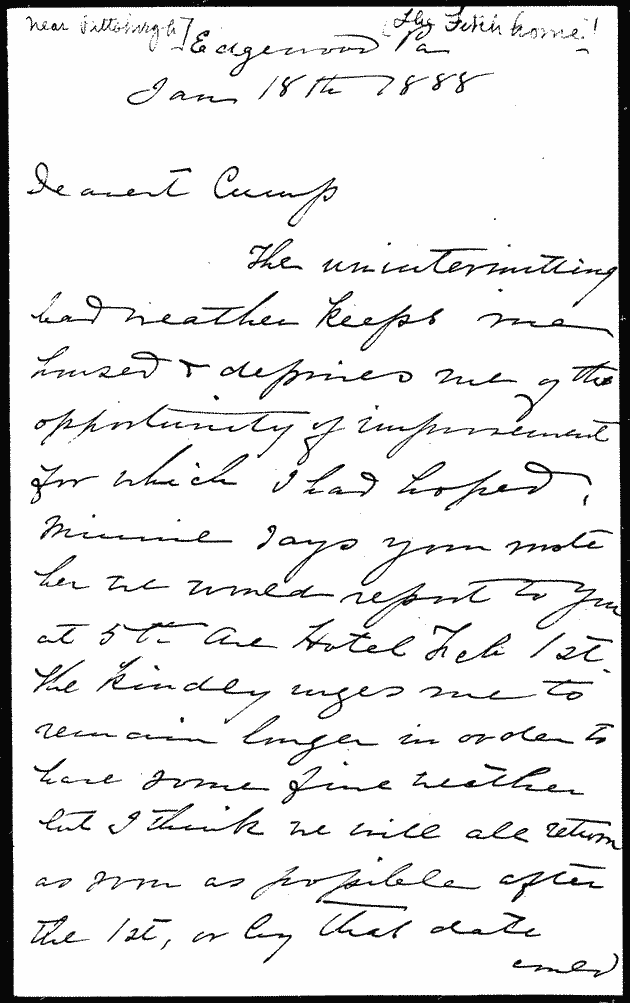 near Pittsburgh] (The Fitch home!
Edgewood Pa
Jan 18th 1888
Dearest Cump
The unintermitting
bad weather keeps me
housed & deprives me of the
opportunity of improvement
for which I had hoped,
Minnie says you wrote
her we would report to you
at 5th Ave Hotel Feb 1st.
She kindly urges me to
remain longer in order to
have some fine weather
but I think we will all return
as soon as possible after
the 1st, or by that date